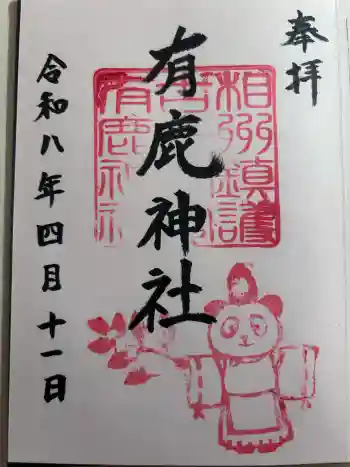 奉拝
有鹿神社
令和八年四月十一日
相州鎮護
有鹿神社